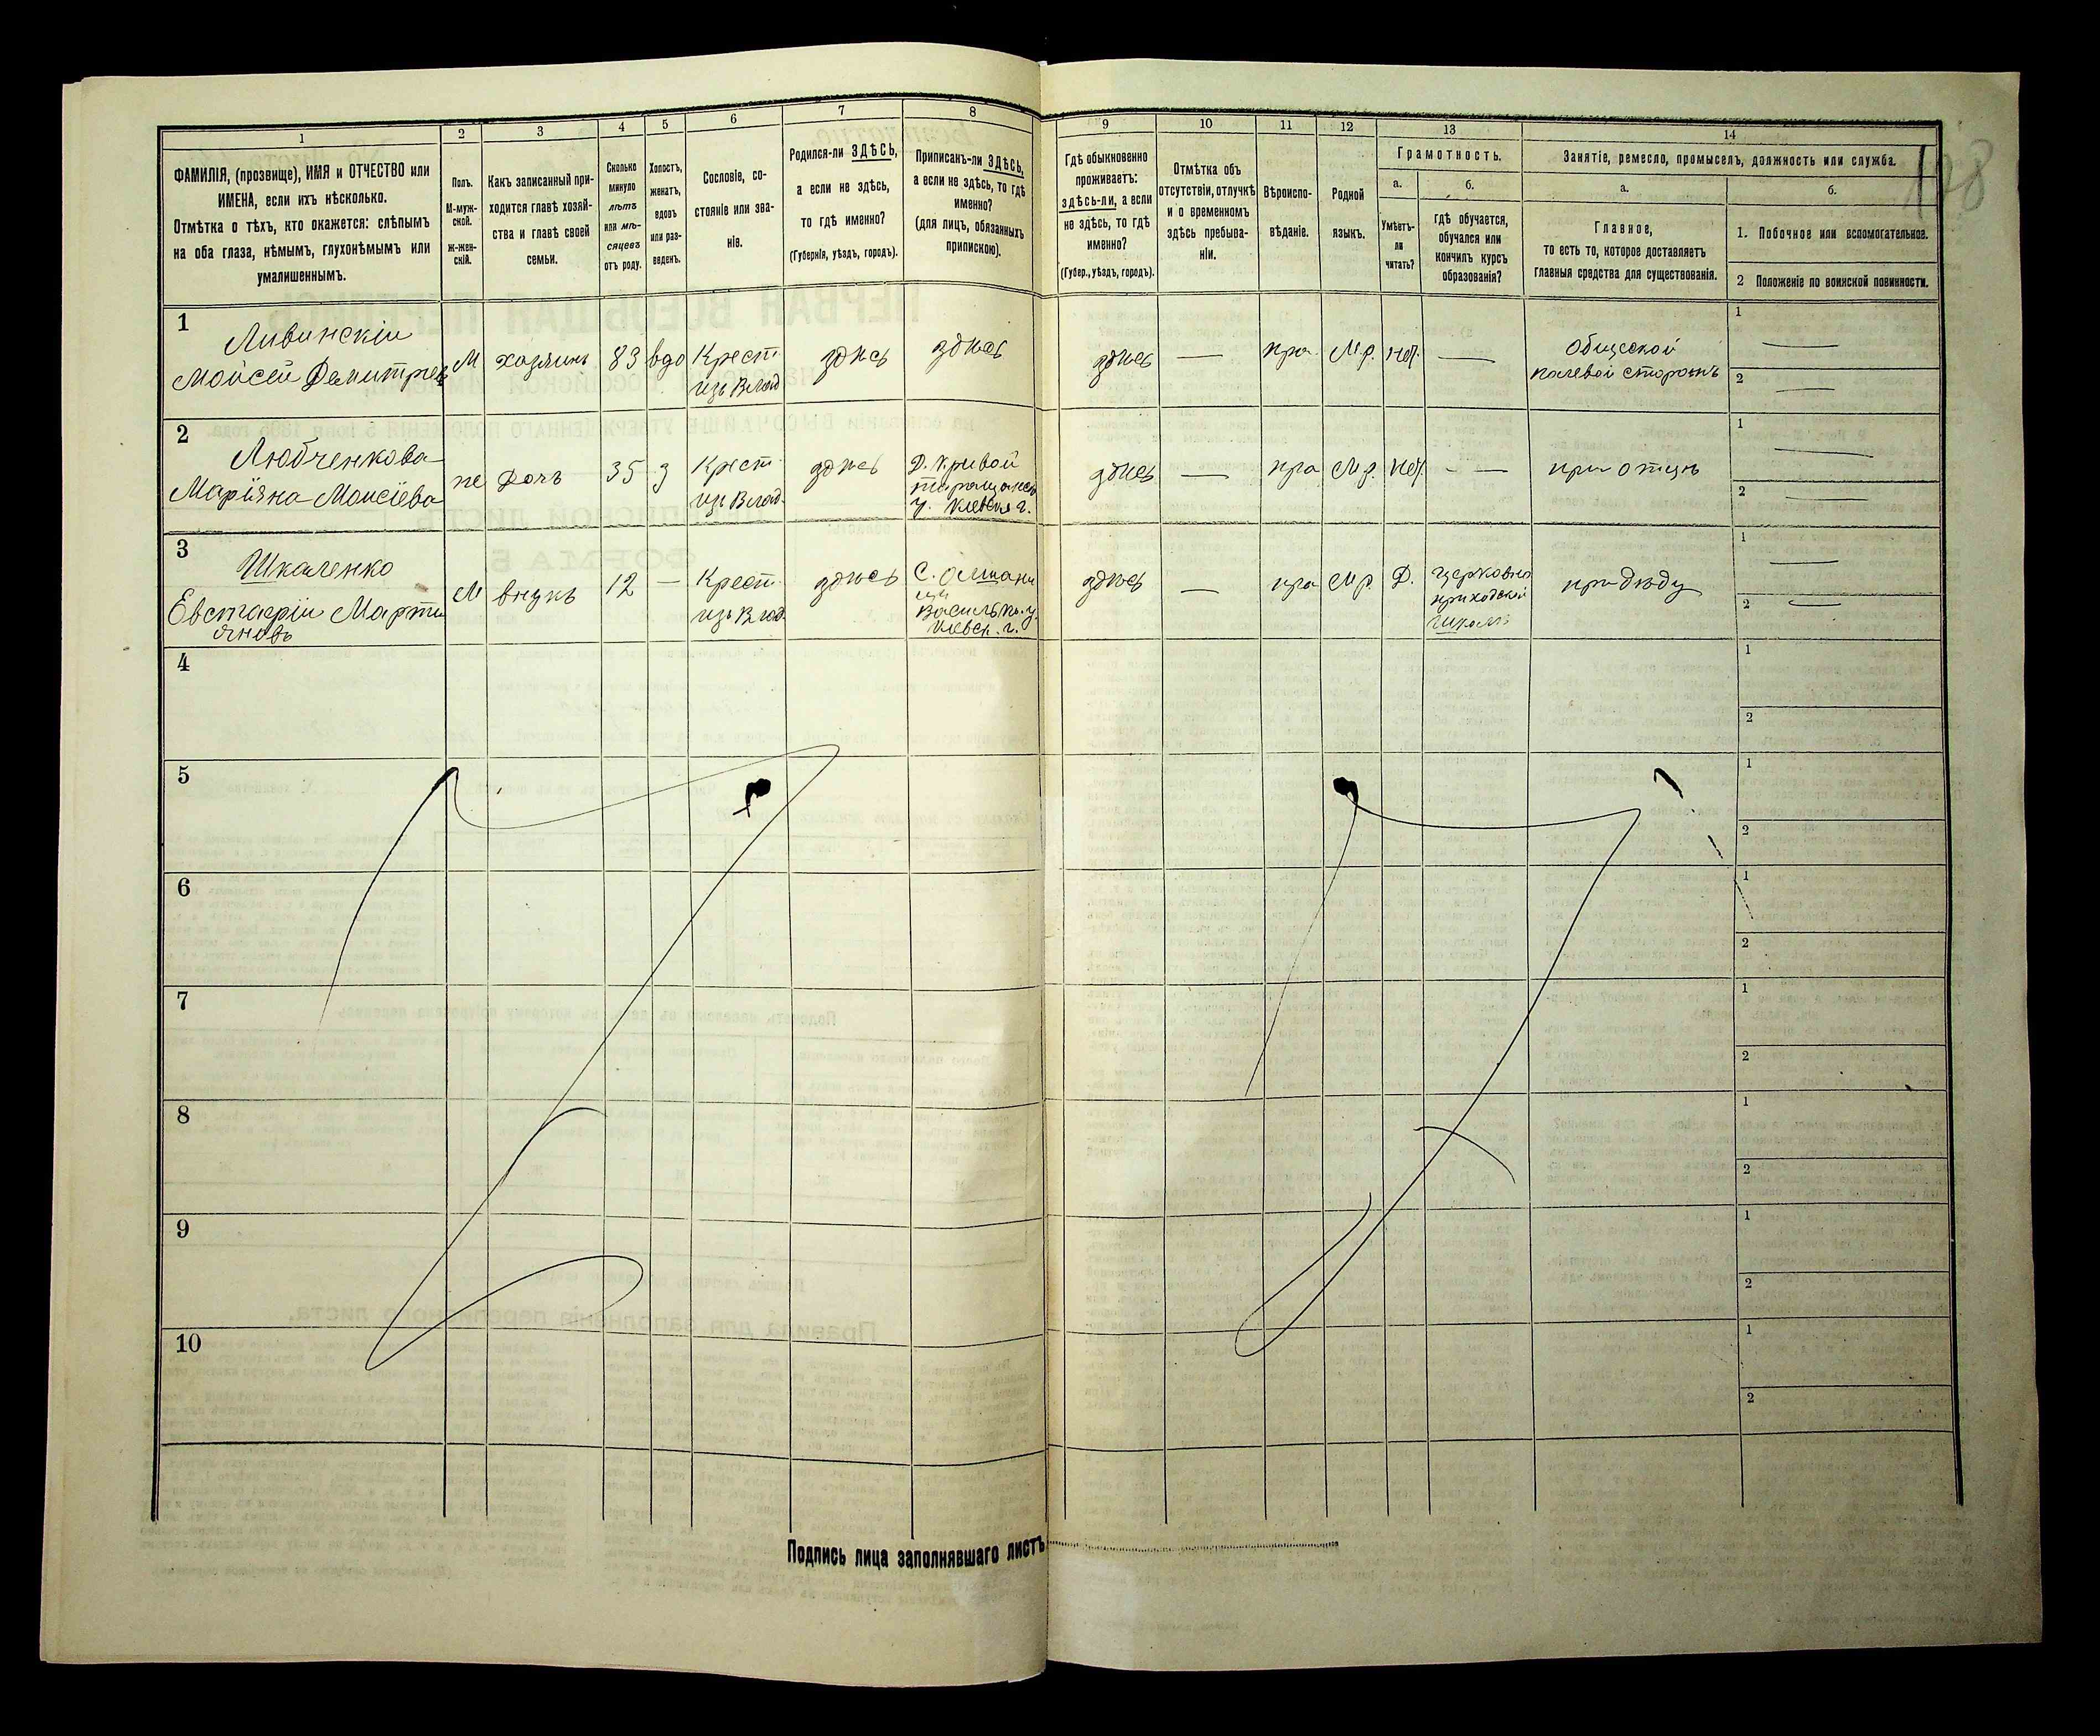 1
2
3
4
5
6
7
8
9
10
11
12
13
14
ФАМИЛІЯ, (прозвище), ИМЯ и ОТЧЕСТВО или
ИМЕНА, если ихъ нѣсколько.
Отмѣтка о тѣхъ, кто окажется: слѣпымъ
на оба глаза, нѣмымъ, глухонѣмымъ или
умалишеннымъ.
Полъ.
М-муж-
ской.
Ж-жен-
скій.
Какъ записанный при-
ходится главѣ хозяй-
ства и главѣ своей
семьи.
Сколько
минуло
лѣтъ
или мѣ-
сяцевъ
отъ роду.
Холостъ,
женатъ,
вдовъ
или раз-
веденъ.
Сословіе, со-
стояніе или зва-
ніе.
Родился-ли ЗДѢСЬ,
а если не здѣсь,
то гдѣ именно?
(Губернія, уѣздъ, городъ).
Приписанъ-ли ЗДѢСЬ,
а если не здѣсь, то гдѣ
именно?
(для лицъ, обязанныхъ
припискою).
Гдѣ обыкновенно
проживаетъ:
ЗДѢСЬ-ли, а если
не здѣсь, то гдѣ
именно?
(Губер., уѣздъ, городъ).
Отмѣтка объ
отсутствіи, отлучкѣ
и о временномъ
здѣсь пребыва-
ніи.
Вѣроиспо-
вѣданіе.
Родной
языкъ.
Грамотность.
а.
Умѣетъ-
ли
читать?
б.
гдѣ обучается,
обучался или
кончилъ курсъ
образованія?
Занятіе, ремесло, промыселъ, должность или служба.
а.
Главное,
то есть то, которое доставляетъ
главныя средства для существованія.
б.
1. Побочное или вспомогательное.
2 Положеніе по воинской повинности.
1
Ливинскій
Мойсей Демитріев
М
хозяинъ
83
вдо
Крест.
изъ Влад
здѣсь
здѣсь
здѣсь
—
пра.
М.р.
Нѣт.
—
1 —
2 —
2
Любченкова
Маріяна Моисіева
же
Дочь
35
з
Крест.
изъ Влад.
здѣсь
Д. Кривой
Таращанск
у. Киевск г.
здѣсь
—
пра
М.р.
Нѣт
—
при отцѣ
1 —
2 —
3
Шкаленко
Евстафій Марти
яновъ
М
внукъ
12
—
Крест.
изъ Влад.
здѣсь
Васильк. у.
Киевск. г.
здѣсь
—
пра
М.р.
Д.
Церковно
приходской
школѣ
при дѣду
1 —
2 —
4
1
2
5
1
2
6
1
2
7
1
2
8
1
2
9
1
2
10
1
2
Подпись лица заполнявшаго листъ